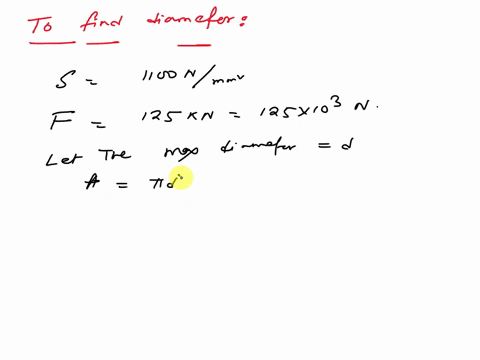 To find diameter:
S = 1100 N/mm²
F = 125 KN = 125×10³ N.
Let The max diameter = d
A = πd²